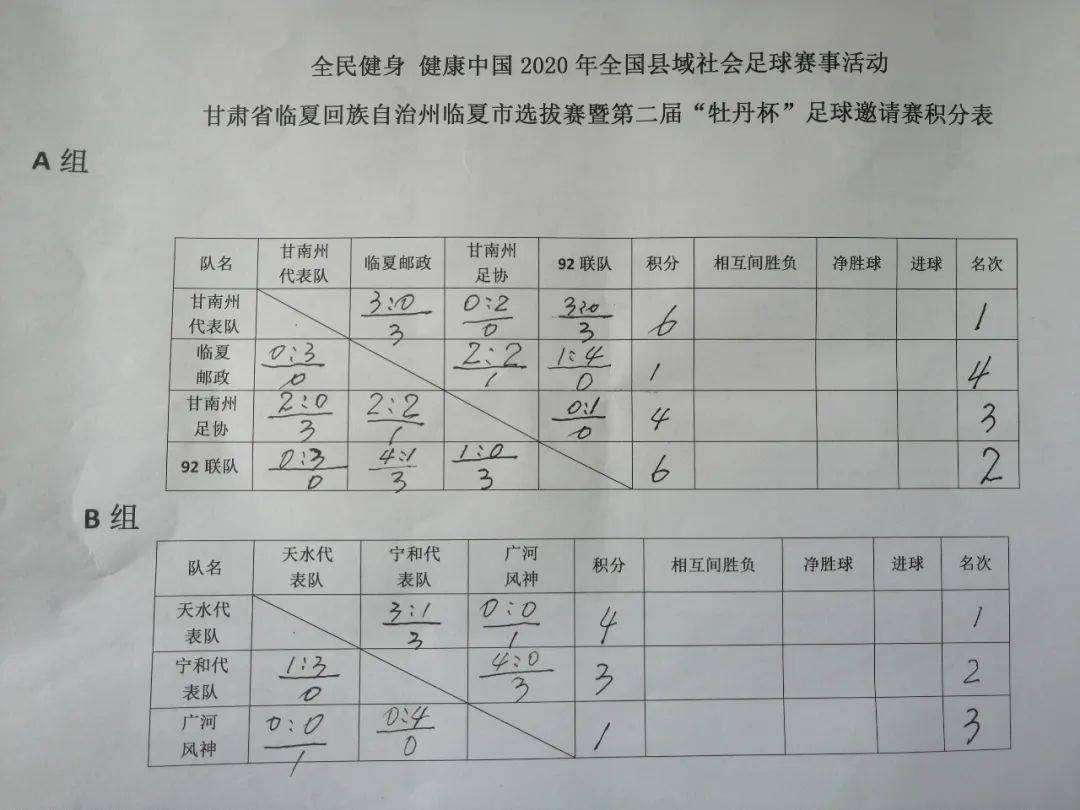 全民健身 健康中国 2020 年全国县域社会足球赛事活动
甘肃省临夏回族自治州临夏市选拔赛暨第二届“牡丹杯”足球邀请赛积分表
A 组
队名 甘南州代表队 临夏邮政 甘南州足协 92 联队 积分 相互间胜负 净胜球 进球 名次
甘南州代表队 3:0 3 0:2 0 3:0 3 6 1
临夏邮政 0:3 0 2:2 1 1:4 0 1 4
甘南州足协 2:0 3 2:2 1 0:1 0 4 3
92 联队 0:3 0 4:1 3 1:0 3 6 2
B 组
队名 天水代表队 宁和代表队 广河风神 积分 相互间胜负 净胜球 进球 名次
天水代表队 3:1 3 0:0 1 4 1
宁和代表队 1:3 0 4:0 3 3 2
广河风神 0:0 1 0:4 0 1 3